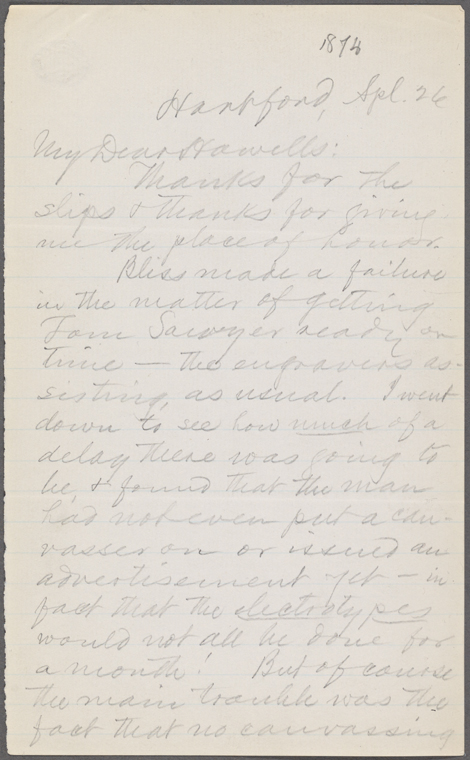 1874
Hartford, Apl. 26
My Dear Howells:
Thanks for the
slips & thanks for giving
me the place of honor.
Bliss made a failure
in the matter of getting
Tom Sawyer ready on
time — the engravers as-
sisting, as usual. I went
down to see how much of a
delay there was going to
be, & found that the man
had not even put a can-
vasser on or issued an
advertisement yet — in
fact that the electrotypes
would not all be done for
a month! But of course
the main trouble was the
fact that no canvassing